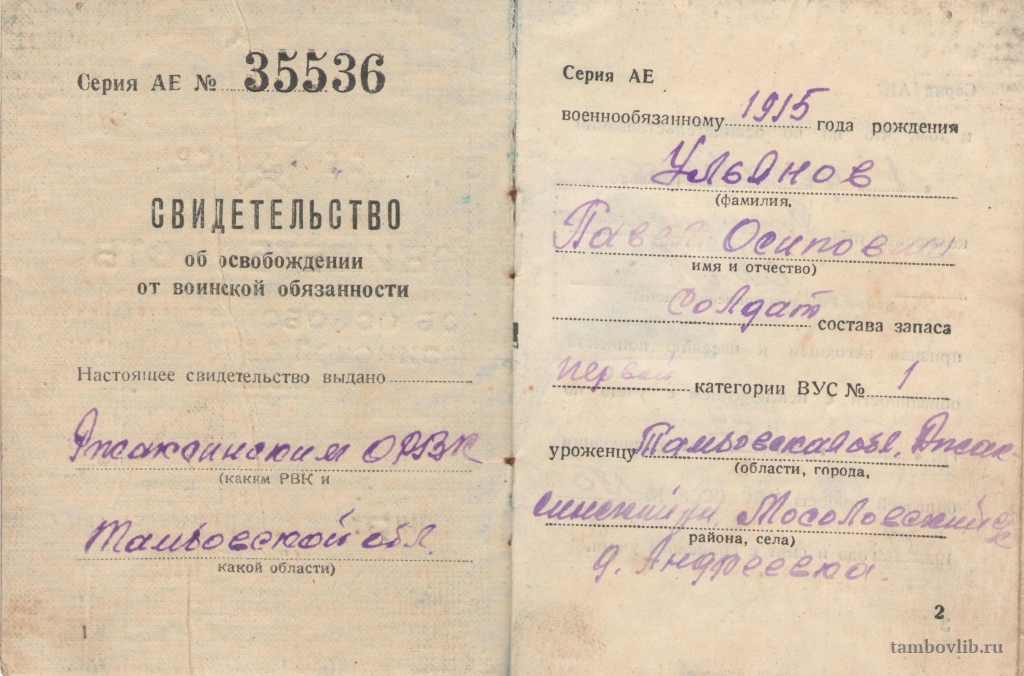 Серия АЕ № 35536
СВИДЕТЕЛЬСТВО
об освобождении
от воинской обязанности
Настоящее свидетельство выдано
Ржаксинским ОРВК
(каким РВК и
Тамбовской обл.
какой области)
1
Серия АЕ
военнообязанному 1915 года рождения
Ульянов
(фамилия,
Павел Осипович
имя и отчество)
солдат состава запаса
первой категории ВУС № 1
уроженцу Тамбовская обл. Ржак-
(области, города,
синский р-н, Мосоловский с/с
района, села)
д. Андреевка.
2
tambovlib.ru